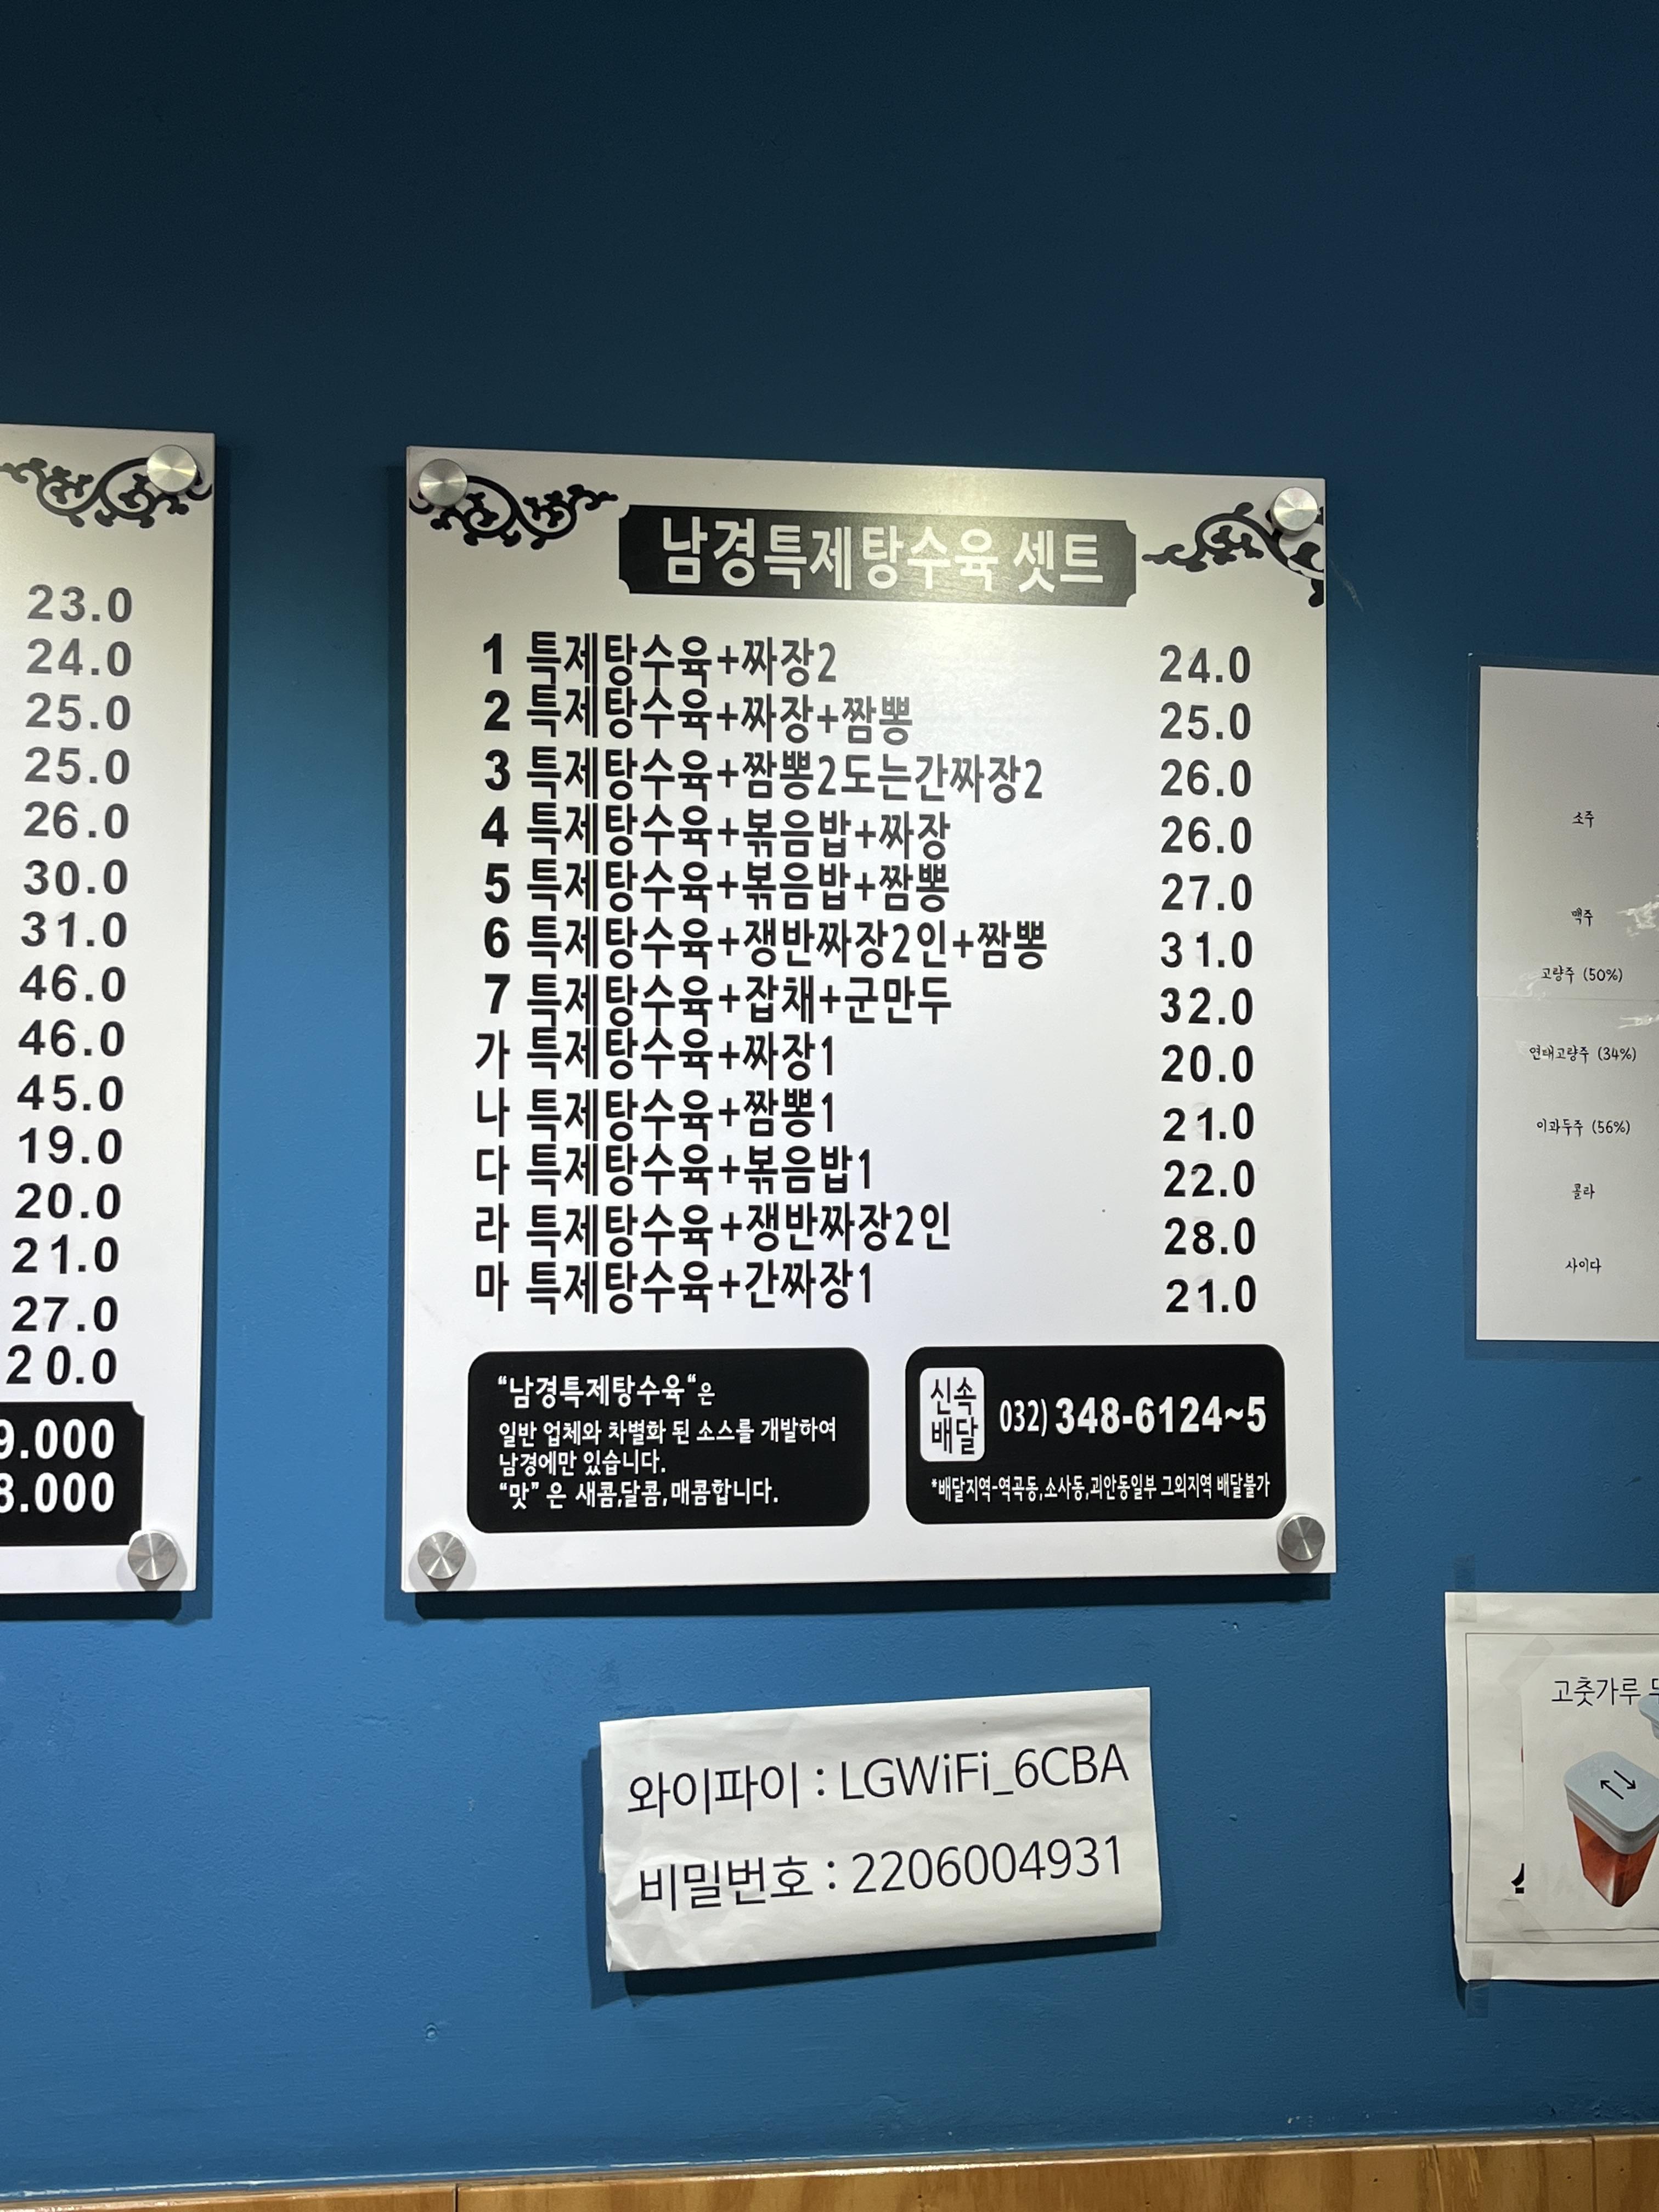 23.0
24.0
25.0
25.0
26.0
30.0
31.0
46.0
46.0
45.0
19.0
20.0
21.0
27.0
20.0
9.000
8.000
남경특제탕수육 셋트
1 특제탕수육+짜장2 24.0
2 특제탕수육+짜장+짬뽕 25.0
3 특제탕수육+짬뽕2또는간짜장2 26.0
4 특제탕수육+볶음밥+짜장 26.0
5 특제탕수육+볶음밥+짬뽕 27.0
6 특제탕수육+쟁반짜장2인+짬뽕 31.0
7 특제탕수육+잡채+군만두 32.0
가 특제탕수육+짜장1 20.0
나 특제탕수육+짬뽕1 21.0
다 특제탕수육+볶음밥1 22.0
라 특제탕수육+쟁반짜장2인 28.0
마 특제탕수육+간짜장1 21.0
“남경특제탕수육“은
일반 업체와 차별화 된 소스를 개발하여
남경에만 있습니다.
“맛” 은 새콤,달콤,매콤합니다.
신속
배달
032) 348-6124~5
*배달지역-역곡동,소사동,괴안동일부 그외지역 배달불가
소주
맥주
고량주 (50%)
연태고량주 (34%)
이과두주 (56%)
콜라
사이다
와이파이 : LGWiFi_6CBA
비밀번호 : 2206004931
고춧가루